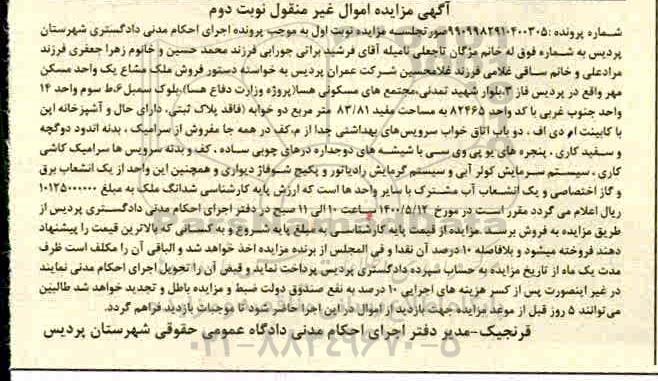 آگهی مزایده اموال غیر منقول نوبت دوم
شماره پرونده :۹۹۰۹۹۸۲۹۱۰۴۰۰۳۰۵صورتجلسه مزایده نوبت اول به موجب پرونده اجرای احکام مدنی دادگستری شهرستان
پردیس به شماره فوق له خانم مژگان تاجعلی نامیله آقای فرشید براتی جورابی فرزند محمد حسین و خانوم زهرا جعفری فرزند
مرادعلی و خانم ساقی غلامی فرزند غلامحسین شرکت عمران پردیس به خواسته دستور فروش ملک مشاع یک واحد مسکن
مهر واقع در پردیس فاز ۳،بلوار شهید تمدنی،مجتمع های مسکونی هسا(پروژه وزارت دفاع هسا)،بلوک سمبل۶،ط سوم واحد ۱۴
واحد جنوب غربی با کد واحد ۸۲۴۶۵ به مساحت مفید ۸۳/۸۱ متر مربع دو خوابه (فاقد پلاک ثبتی، دارای حال و آشپزخانه این
با کابینت ام دی اف ، دو باب اتاق خواب سرویس‌های بهداشتی جدا از م،کف در همه جا مفروش از سرامیک ، بدنه اندود دوگچه
و سفید کاری ، پنجره های یو پی وی سی با شیشه های دوجداره درهای چوبی ساده ، کف و بدنه سرویس ها سرامیک کاشی
کاری ، سیستم سرمایش کولر آبی و سیستم گرمایش رادیاتور و پکیج شوفاژ دیواری و همچنین این واحد از یک انشعاب برق
و گاز اختصاصی و یک انشعاب آب مشترک با سایر واحد ها است که ارزش پایه کارشناسی شدانگ ملک به مبلغ ۱۰۱۲۵۰۰۰۰۰۰
ریال اعلام می گردد مقرر است در مورخ ۱۴۰۰/۵/۱۲ ساعت ۱۰ الی ۱۱ صبح در دفتر اجرای احکام مدنی دادگستری پردیس از
طریق مزایده به فروش برسد .مزایده از قیمت پایه کارشناسی به مبلغ پایه شروع و به کسانی که بالاترین قیمت را پیشنهاد
دهند فروخته میشود و بلافاصله ۱۰ درصد آن نقدا و فی المجلس از برنده مزایده اخذ خواهد شد و الباقی آن را مکلف است ظرف
مدت یک ماه از تاریخ مزایده به حساب سپرده دادگستری پردیس پرداخت نماید و قبض آن را تحویل اجرای احکام مدنی نمایند
در غیر اینصورت پس از کسر هزینه های اجرایی ۱۰ درصد به نفع صندوق دولت ضبط و مزایده باطل و تجدید خواهد شد طالبین
می توانند ۵ روز قبل از موعد مزایده جهت بازدید از اموال در این اجرا حاضر شود تا موجبات بازدید فراهم گردد.
قرنجیک-مدیر دفتر اجرای احکام مدنی دادگاه عمومی حقوقی شهرستان پردیس
۰۲۱-۸۸۳۴۹۶۷۰-۵